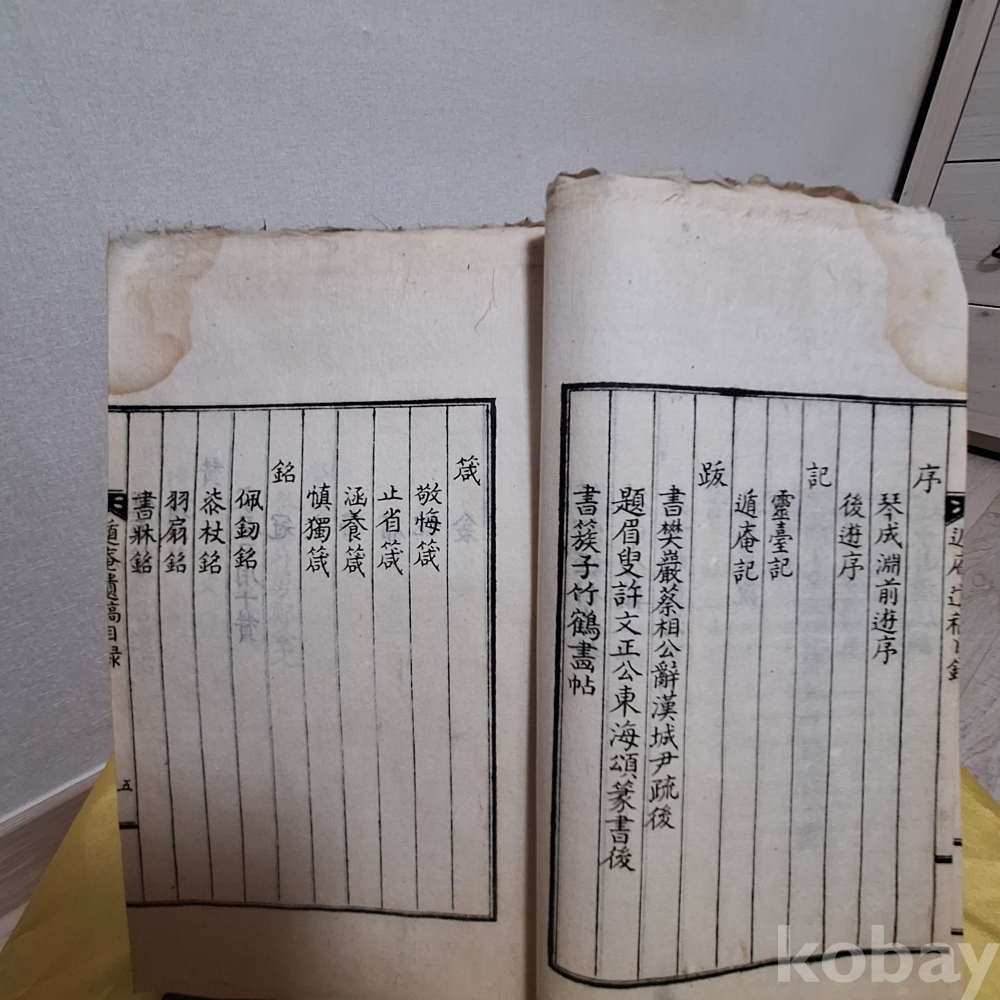 序
琴成淵前遊序
後遊序
記
靈臺記
遁庵記
跋
書樊巖蔡相公辭漢城尹疏後
題眉叟許文正公東海頌篆書後
書簇子竹鶴畫帖
箴
敬悔箴
止省箴
涵養箴
慎獨箴
銘
佩釰銘
漆杖銘
羽扇銘
書牀銘
遁庵遺稿目録
五
kobay